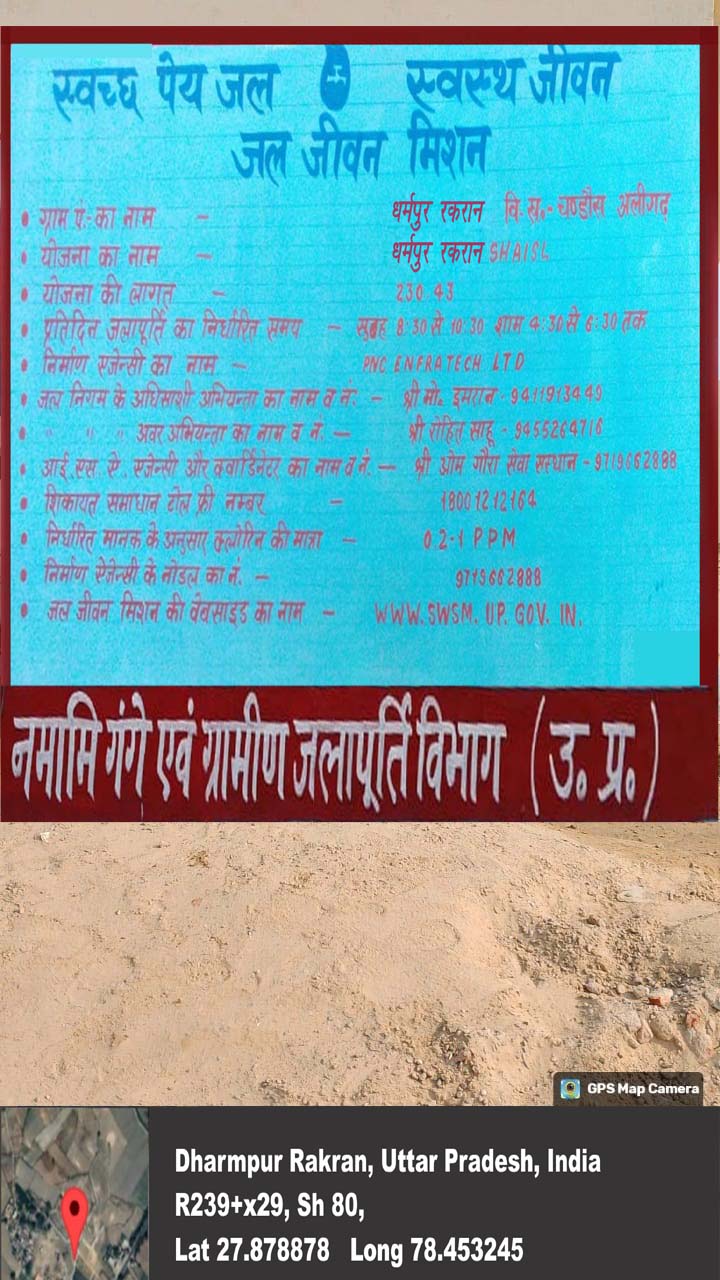 स्वच्छ पेय जल स्वस्थ जीवन
जल जीवन मिशन
• ग्राम पं:-का नाम - धर्मपुर रकरान वि.ख.-चण्डौस अलीगढ़
• योजना का नाम - धर्मपुर रकरान SHAISL
• योजना की लागत - 230.43
• प्रतिदिन जलापूर्ति का निर्धारित समय - सुबह 8:30 से 10:30 शाम 4:30 से 6:30 तक
• निर्माण एजेन्सी का नाम - PNC ENFRATECH LTD
• जल निगम के अधिसाशी अभियन्ता का नाम व नं: - श्री मो. इमरान - 9411913449
• " " " अवर अभियन्ता का नाम व नं - श्री रोहित साहू - 9455264716
• आई.एस.ए. एजेन्सी और क्वार्डिनेटर का नाम व नं. - श्री ओम गौरा सेवा सस्थान - 9719662888
• शिकायत समाधान टोल फ्री नम्बर - 18001212164
• निर्धारित मानक के अनुसार क्लोरिन की मात्रा - 0 2-1 PPM
• निर्माण ऐजेन्सी के नोडल का नं. - 9715662888
• जल जीवन मिशन की वेबसाइड का नाम - WWW.SWSM.UP.GOV.IN.
नमामि गंगे एवं ग्रामीण जलापूर्ति विभाग (उ.प्र.)
GPS Map Camera
Dharmpur Rakran, Uttar Pradesh, India
R239+x29, Sh 80,
Lat 27.878878 Long 78.453245